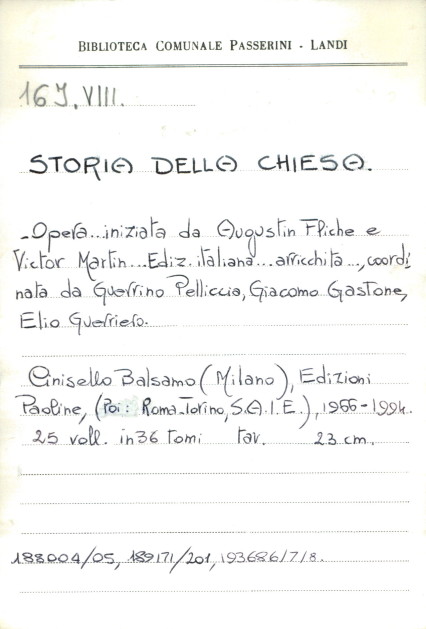 BIBLIOTECA COMUNALE PASSERINI - LANDI
16 J. VIII.
STORIA DELLA CHIESA.
-Opera...iniziata da Augustin Fliche e
Victor Martin...Ediz. italiana...arricchita..., coordi
nata da Guerrino Pelliccia, Giacomo Gastone,
Elio Guerriero.
Cinisello Balsamo (Milano), Edizioni
Paoline, (Poi: Roma-Torino, S.A.I.E.), 1966-1994.
25 voll. in 36 tomi tav. 23 cm.
188004/05, 189171/201, 193686/7/8.